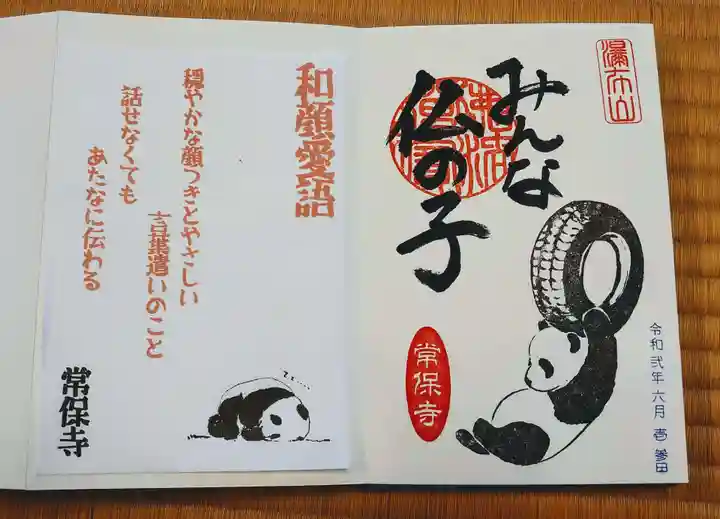 瀑布山
みんな
仏の子
常保寺
令和弐年 六月 壱 参日
和顔愛語
穏やかな顔つきとやさしい
言葉遣いのこと
話せなくても
あたなに伝わる
常保寺